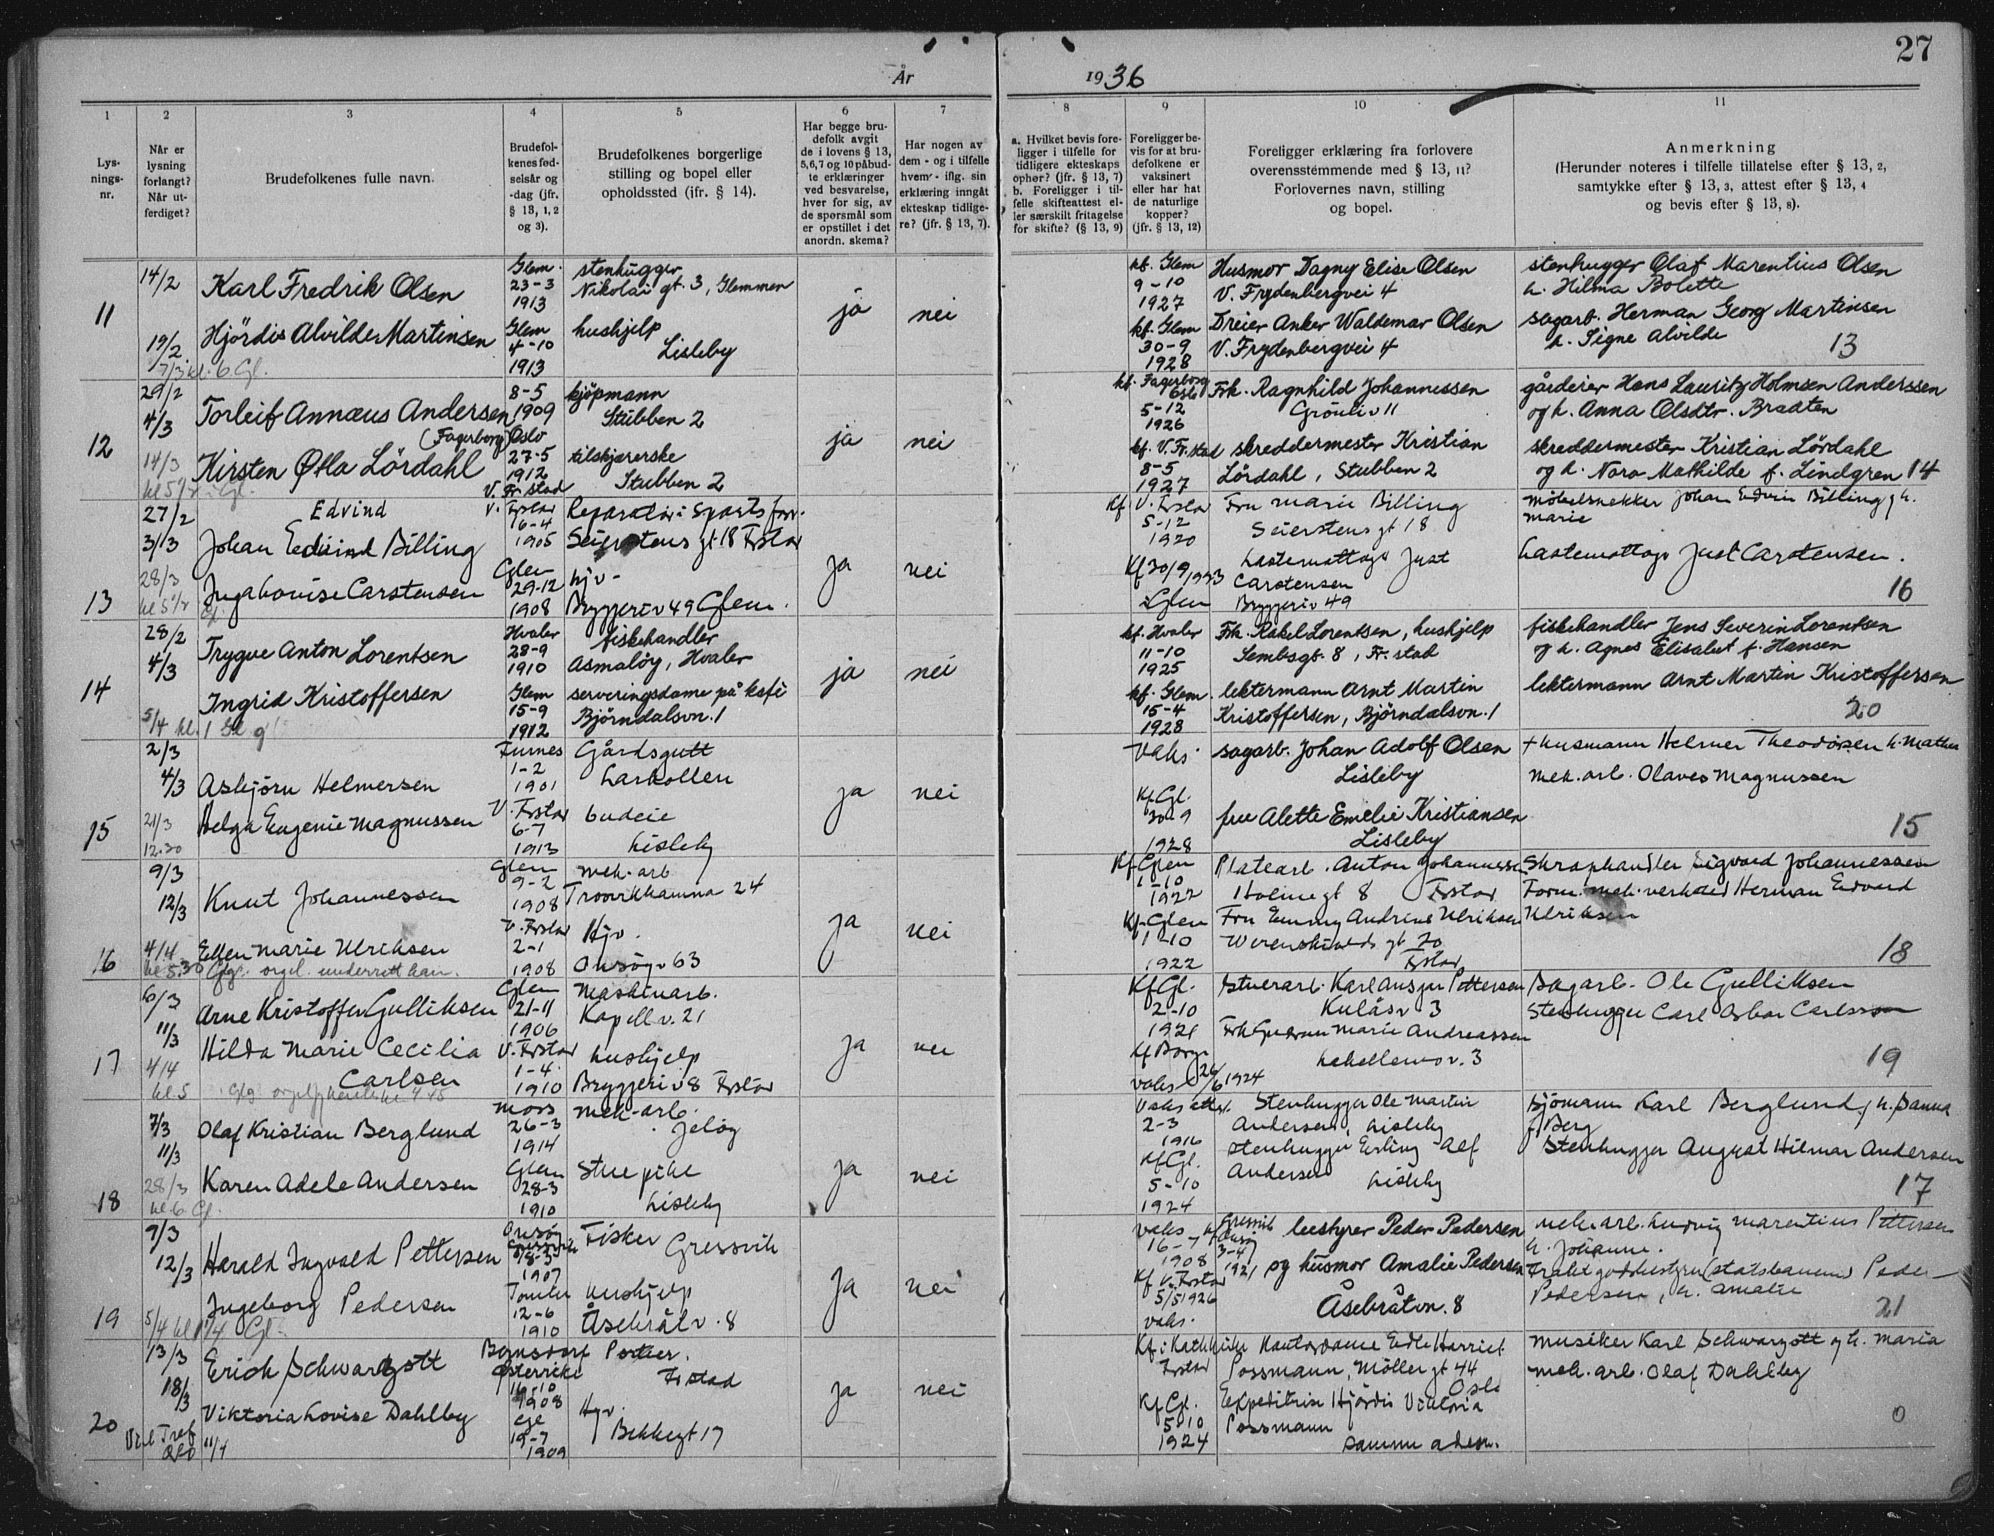 27
År 1936
1 2 3 4 5 6 7 8 9 10 11
Lys-
nings-
nr.
Når er
lysning
forlangt?
Når ut-
ferdiget?
Brudefolkenes fulle navn.
Brudefol-
kenes fød-
selsår og
-dag (jfr.
§ 13, 1, 2
og 3).
Brudefolkenes borgerlige
stilling og bopel eller
opholdssted (ifr. § 14).
Har begge bru-
defolk avgit
de i lovens § 13,
5,6,7 og 10 påbud-
te erklæringer
ved besvarelse,
hver for sig, av
de spørsmål som
er opstillet i det
anordn. skema?
Har nogen av
dem - og i tilfelle
hvem - iflg. sin
erklæring inngåt
ekteskap tidlige-
re? (jfr. § 13, 7).
a. Hvilket bevis fore-
ligger i tilfelle for
tidligere ekteskaps
ophør? (jfr. § 13, 7)
b. Foreligger i til-
felle skifteattest el-
ler særskilt fritagelse
for skifte? (§ 13, 9)
Foreligger be-
vis for at bru-
defolkene er
vaksinert
eller har hat
de naturlige
kopper?
(jfr. § 13, 12)
Foreligger erklæring fra forlovere
overensstemmende med § 13, 11?
Forlovernes navn, stilling
og bopel.
Anmerkning
(Herunder noteres i tilfelle tillatelse efter § 13, 2,
samtykke efter § 13, 3, attest efter § 13, 4
og bevis efter § 13, 8).
11
14/2
19/2
7/3 kl. 6 Gl.
Karl Fredrik Olsen
Hjördis Alvilde Martinsen
Glem.
23-3
1913
Glem
4-10
1913
stenhugger
Nikolai gt. 3, Glemmen
hushjelp
Lisleby
ja
nei
kf. Glem
9-10
1927
kf. Glem
30-9
1928
Husmor Dagny Elise Olsen
V. Frydenbergvei 4
Dreier Anker Waldemar Olsen
V. Frydenbergvei 4
stenhugger Olaf Marentius Olsen
h. Hilma Bolette
sagarb. Herman Georg Martinsen
h. Signe Alvilde
13
12
29/2
4/3
14/3
Torleif Annæus Andersen
(Fagerborg)
Kirsten Øtla Lördahl
8-5
1909
Oslo
27-5
1912
V. Fr.stad
kjöpmann
Stubben 2
tilskjærerske
Stubben 2
ja
nei
kf. Fagerborg
Oslo
5-12
1926
kf. V. Fr.stad
8-5
1927
Frk. Ragnhild Johannessen
Grönliv 11
skreddermester Kristian
Lördahl, Stubben 2
gårdeier Hans Lauritz Holmsen Anderssen
og h. Anna Olsdtr. Braaten
skreddermester Kristian Lördahl
og h. Nora Mathilde f. Lindgren 14
13
27/2
3/3
28/3
Edvind
Johan Edvind Billing
Inga Lovise Carstensen
V. Frstad
6-4
1905
Glem
29-12
1908
Reparatör i Sportsforr.
Seierstens gt 18 Frstad
hjv-
Bryggeriv 49 Glem.
ja
nei
Kf. V. Frstad
5-12
1920
Kf 30/9 1923
i Glem
Fru Marie Billing
Seierstens gt 18
Lastemottager Just
Carstensen
Bryggeriv 49
Möbelsnekker Johan Edvin Billing og h.
Marie
Lastemottager Just Carstensen.
16
14
28/2
4/3
5/4 kl. 1 Gl
Trygve Anton Lorentsen
Ingrid Kristoffersen
Hvaler
28-9
1910
Glem
15-9
1912
fiskehandler
Asmalöy, Hvaler
serveringsdame på kafé
Björndalsvn. 1
ja
nei
kf. Hvaler
11-10
1925
kf. Glem.
15-4
1928
Frk. Rakel Lorentsen, hushjelp
Sembsgt. 8, Fr.stad
lektermann Arnt Martin
Kristoffersen, Björndalsvn. 1
fiskehandler Jens Severin Lorentsen
og h. Agnes Elisabet f. Hansen
lektermann Arnt Martin Kristoffersen
20
15
2/3
4/3
21/3
12.30
Asbjörn Helmersen
Helga Eugenie Magnussen
Furnes
1-2
1901
V. Frstad
6-7
1913
Gårdsgutt
Larkollen
budeie
Lisleby
ja
nei
Vaks.
Kf Gl.
30-9
1928
sagarb. Johan Adolf Olsen
Lisleby
frue Alette Emelie Kristiansen
Lisleby
+ husmann Helmer Theodorsen h. Mathea
mek. arb. Olaves Magnussen
15
16
9/3
12/3
4/4
kl 5.30
Knut Johannessen
Ellen Marie Ulriksen
Glem
9-2
1908
V. Frstad
2-1
1908
mek. arb
Trosvikhamna 24
Hjv.
Onsöyv 63
ja
nei
Kf Glem
1-10
1922
Kf-Glem
1-10
1922
Platearb. Anton Johannessen
Holmegt 8 Frstad
Fru Emmy Andrine Ulriksen
Werenskiolds gt 20
Frstad
Skraphandler Sigvard Johannessen
Form. mek. verksted Herman Edvard
Ulriksen
18
17
6/3
11/3
4/4
kl 5
Arne Kristoffer Gulliksen
Hilda Marie Cecilia
Carlsen
Glem
21-11
1906
V. Frstad
1-4
1910
Maskinarb.
Kapellv. 21
hushjelp
Bryggeriv 8 Frstad
ja
nei
Kf Gl.
2-10
1921
Kf Borge
26/6 1924
vaks
Stuerarb. Karl Ansgar Pettersen
Kulåsv 3
Frk Gudrun Marie Andreassen
v. 3
Sagarb. Ole Gulliksen
Stenhugger Carl Oskar Carlsson
19
18
7/3
11/3
28/3
kl 6 Gl.
Olaf Kristian Berglund
Karen Adele Andersen
Moss
26-3
1914
Glem
28-3
1910
mek-arb.
Jelöy
Stuepike
Lisleby
ja
nei
Vaks att.
2-3
1916
Kf Gl.
5-10
1924
Stenhugger Ole Martin
Andersen, Lisleby
stenhugger Erling Alf
Andersen Lisleby
Sjömann Karl Berglund og h. Sanna
f. Berg
Stenhugger August Hilmar Andersen
17
19
9/3
12/3
5/4
Harald Ingvald Pettersen
Ingeborg Pedersen
Onsöy
Gressvik
1907
Tomter
12-6
1910
Fisker
Gressvik
hushjelp
Åsebråtv. 8
ja
nei
vaks
16-7
1908
Gressvik
Onsöy
3-4
1921
Kf V. Frstad
5/5 1926
vaks.
bestyrer Peder Pedersen
og husmor Amalie Pedersen
Åsebråtvn. 8
mek. arb. Ludvig Marentius Pettersen
h. Johanne.
(statsbanen) Peder
Pedersen, h. Amalie
21
20
13/3
18/3
11/4
Erich Schwarzott
Viktoria Lovise Dahlby
Österrike
16-10
1908
19-7
1909
Portier.
Frstad
Hjv.
Bekkegt 17
ja
nei
Kf i Kath. kirke
Frstad
Kf Gl.
5-10
1924
Kontordame Edle Harriet
Possmann, Möller gt 44
Oslo
Expeditrise Hjördis Viktoria
Possmann
samme adr.
Musiker Karl Schwarzott og h. Maria
mek. arb. Olaf Dahlby
0